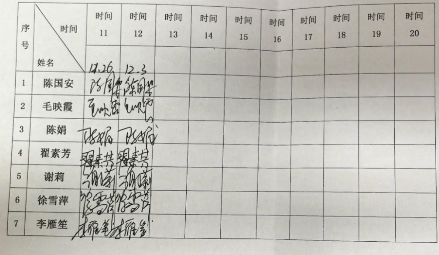 序号 时间 姓名 时间 11 时间 12 时间 13 时间 14 时间 15 时间 16 时间 17 时间 18 时间 19 时间 20
11.26 12.3
1 陈国安 陈国安 陈国安
2 毛映霞 毛映霞 毛映霞
3 陈娟 陈娟 陈娟
4 翟素芳 翟素芳 翟素芳
5 谢莉 谢莉 谢莉
6 徐雪萍 徐雪萍 徐雪萍
7 李雁笙 李雁笙 李雁笙